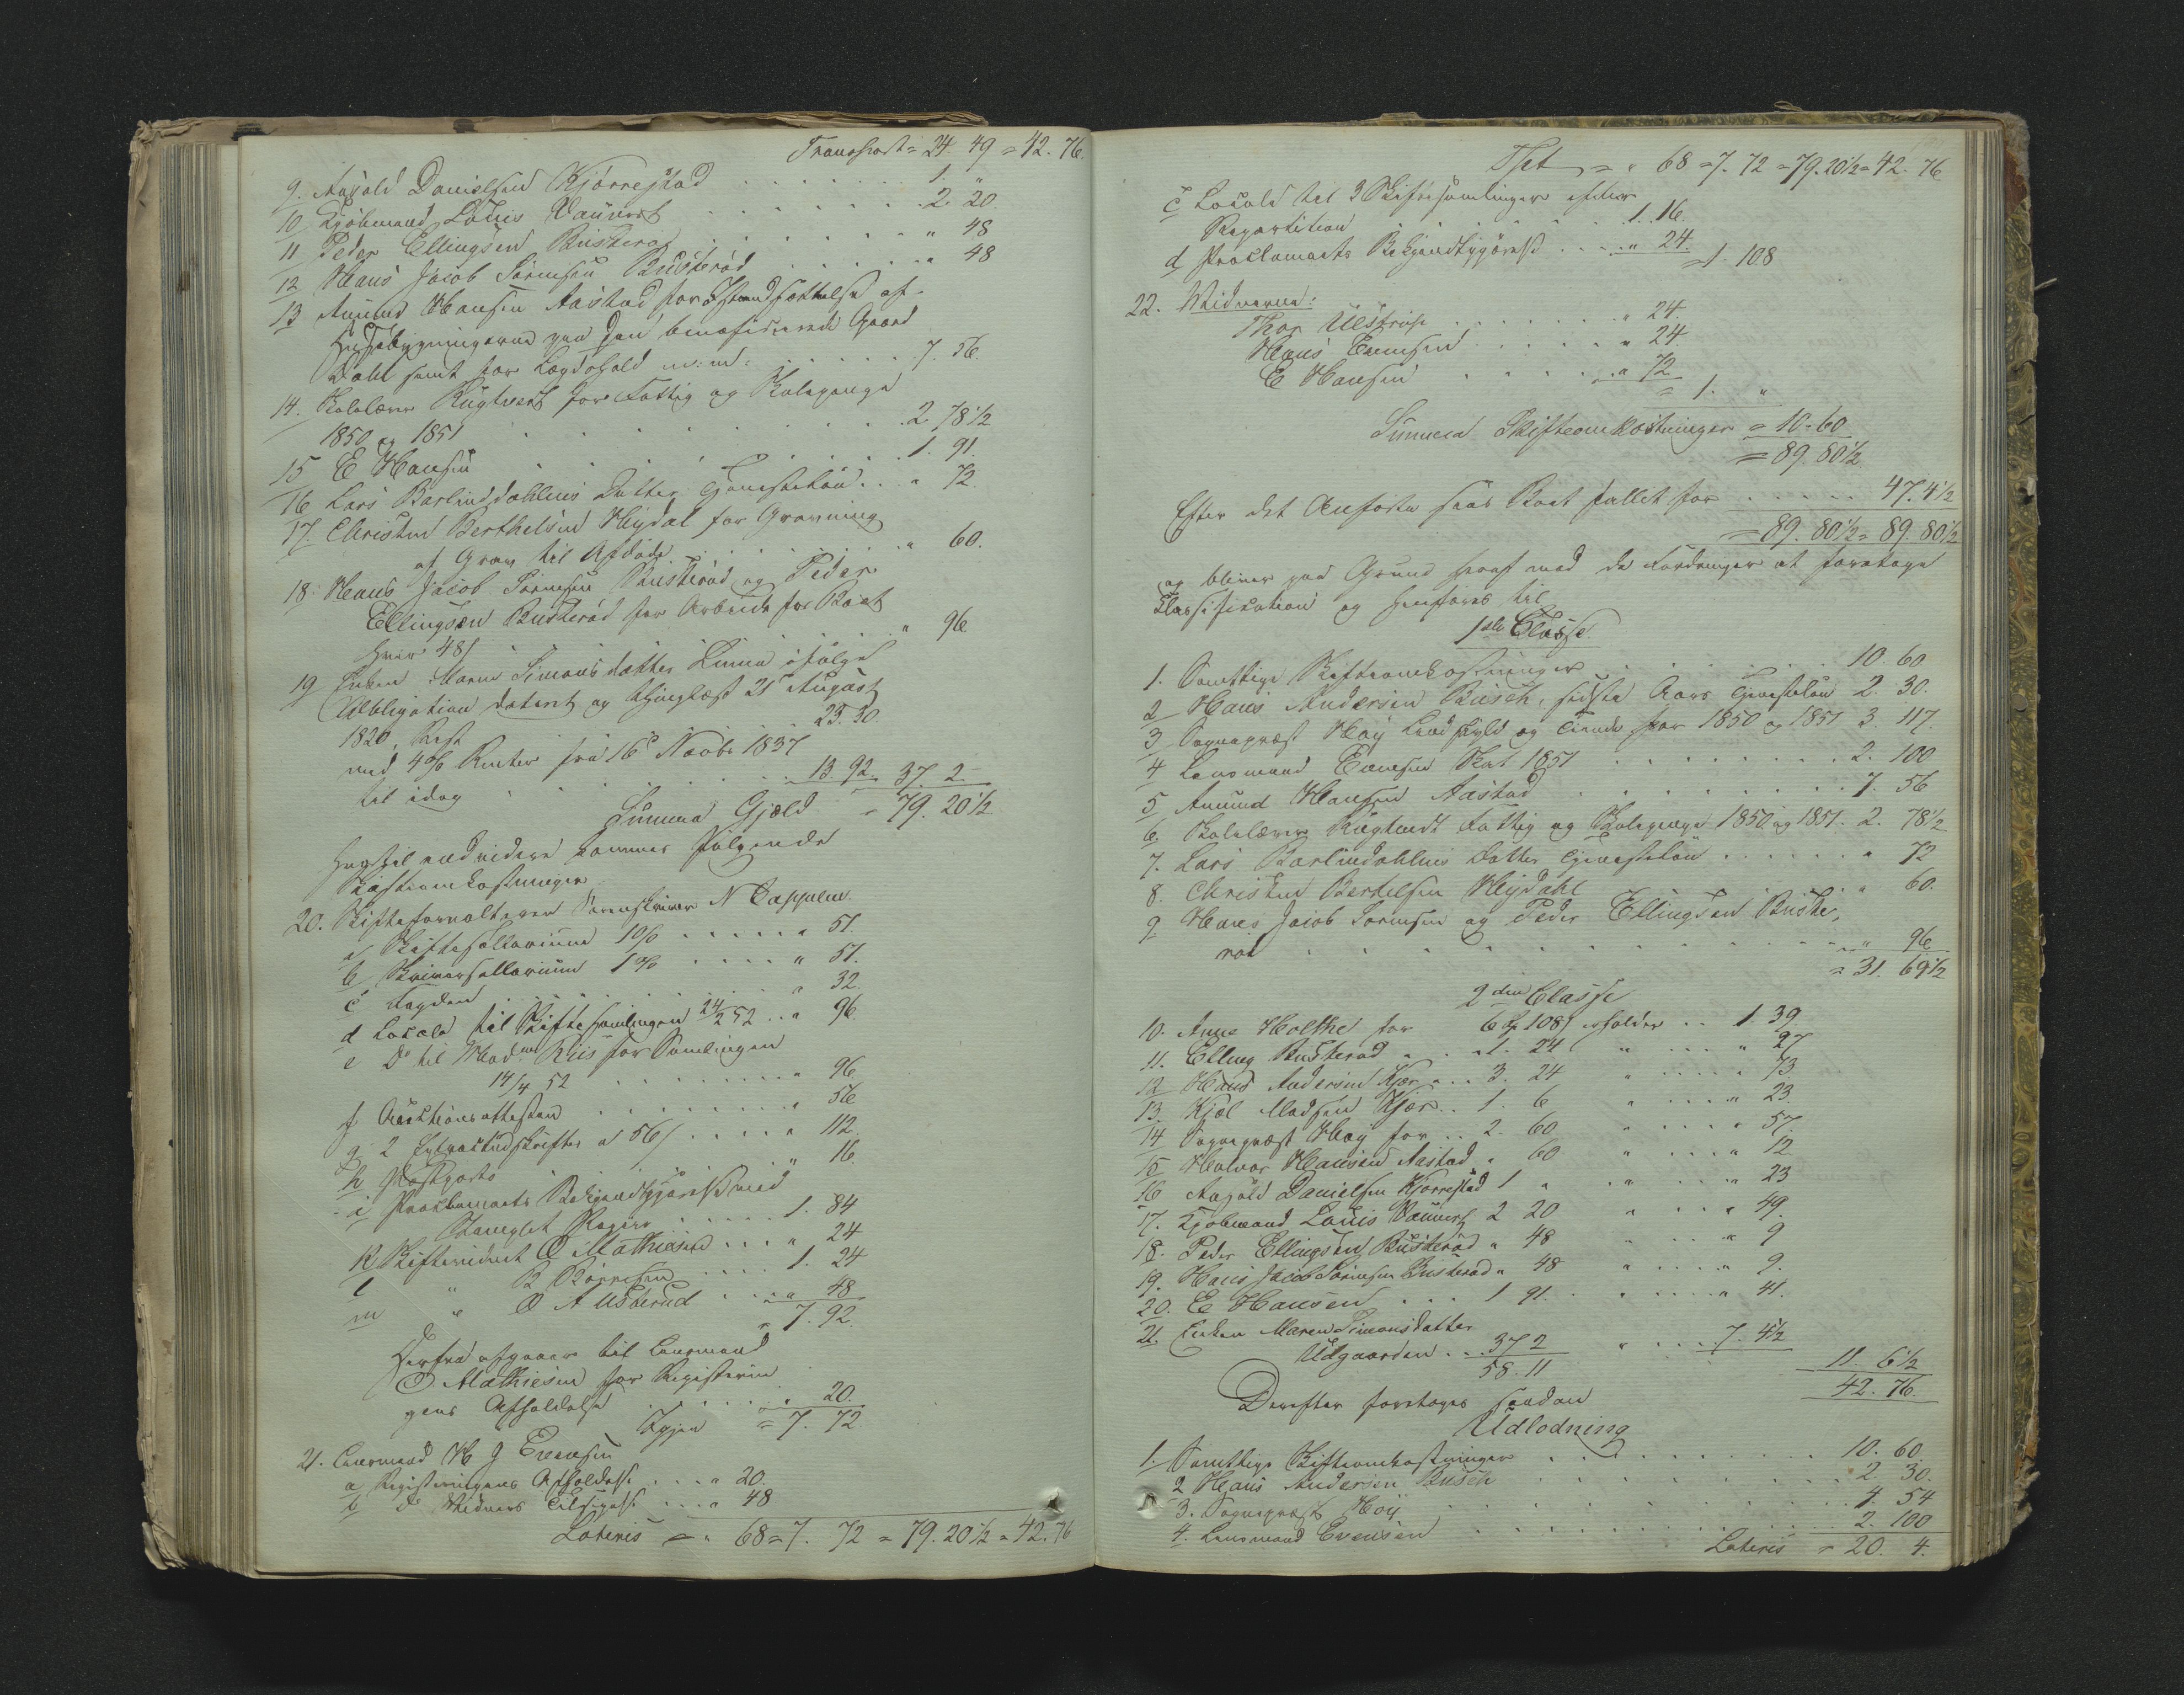 Transport = 24. 49 = 42. 76.
9. Anfold Danielsen Kjørrestad . . . . . . . 1. "
10 Kjøbmand Louis Vauvert . . . . . . . 2. 20.
11 Peder Ellingsen Busterød . . . . . . . " 48
12 Hans Jacob Sørensen Busterød . . . . . " 48
13 Amund Hansen Aastad for Istandsættelse af
Huusbygningerne paa den beneficerede Gaard
Dahl samt for Lægdehold m: m: . . . . . 7. 56.
14. Skolelærer Rugtvedt for Fattig og Skolepenge
1850 og 1851 . . . . . . . 2 78 1/2
15 E Hansen . . . . . . . 1. 91.
16 Lars Barlinddahlens Datter Tjenesteløn . . " 72
17. Christen Berthelsen Heydal for Gravning
af Grav til Afdøde . . . . . . . " 60.
18. Hans Jacob Sørensen Busterød og Peder
Ellingsen Busterød for Arbeide for Boet
hver 48 s . . . . . . . " 96
19 Enken Maren Simonsdatter ifølge
Obligation dateret og thinglæst 21 August
1820, Rest . . . . 23. 30
med 4% Renter fra 16 Novbr 1837
til idag . . . . . . . 13. 92. 37. 2.
Summa Gjeld = 79. 20 1/2
Hertil endvidere kommer følgende
Skifteomkostninger
20. Skifteforvalteren Sorenskriver N Cappelen
a Skiftesallarium 1% . . . . . " 51.
b Skriversallarium 1% . . . . " 51.
c Fogden . . . . . . . " 32.
d Locale til Skiftesamlingen 24/2 52 . . " 96
e Do til Madme Riis for Samlingen
14/4 52 . . . . . . . " 96
f Auctionsattesten . . . . . . . " 56
g 2 Extractudskrifter a 56 s . . . . " 112.
h Postporto . . . . . . . " 16
i Proclamaets Bekjendtgjørelse med
Stemplet Papir . . . . . . 1. 84
k Skiftevidnet O Mathiesen . . . " 24
l " B Børresen . . . . 1. 24
m " O A Usterud . . . " 48
= 7. 92.
Herfra afgaaer til Lensmand
O Mathiesen for Registerin
gens Afholdelse . . . . . . " 20.
Igjen = 7. 72.
21. Lensmand H J Evensen
a Registeringens Afholdelse . . . " 20.
b do Vidners Tilsigelse . . . " 48
Lateris = " 68 = 7. 72 = 79. 20 1/2 = 42. 76
Tspt = " 68 = 7. 72 = 79. 20 1/2 = 42. 76
c Locale til 3 Skiftesamlinger efter
Repartition . . . . . . . 1. 16.
d Proclamaets Bekjendtgjørelse . . . " 24.
= 1. 108
22. Vidnerne:
Thor Ulstrup . . . . . . . " 24.
Hans Evensen . . . . . . " 24.
E Hansen . . . . . . " 72
= 1. "
Summa Skifteomkostninger = 10. 60
= 89. 80 1/2
Efter det Anførte staar Boet fallit for . . . . . 47. 4 1/2
= 89. 80 1/2 = 89. 80 1/2
og bliver paa Grund heraf med de Fordringer at foretage
Classification og henføres til
1ste Classe
1. Samtlige Skifteomkostninger . . . . . . . 10. 60
2 Hans Andersen Busch, sidste Aars Tjenesteløn 2. 30.
3 Sognepræst Høy Landskyld og Tiende for 1850 og 1851 3. 117.
4 Lensmand Evensen Skat 1851 . . . . . . . 2. 100
5 Amund Hansen Aastad . . . . . . . 7. 56
6. Skolelærer Rugtvedt Fattig og Skolepenge 1850 og 1851. 2. 78 1/2
7. Lars Barlinddahlens Datter Tjenesteløn . . . . . . " 72
8. Christen Bertelsen Heydahl . . . . . . . " 60.
9 Hans Jacob Sørensen og Peder Ellingsen Buste,
rød . . . . . . . " 96
= 31. 69 1/2
2den Classe
10. Anne Holthe for 6 Spd 108 s erholder . . 1. 39
11. Elling Busterød . . 1. 24 " . . . " 27
12 Hans Andersen Kjær . . . 3. 24 " . . . " 73
13. Kjøl Madsen Kjær . . 1. 6 " . . . " 23.
14 Sognepræst Høy for . . 2. 60 " . . . " 57.
15 Halvor Hansen Aastad " 60 " . . . " 12
16 Anfold Danielsen Kjørrestad 1 " " . . . " 23
17. Kjøbmand Louis Vauvert 2 20 " . . . " 49.
18. Peder Ellingsen Busterød " 48 " . . . " 9
19. Hans Jacob Sørensen Busterød " 48 " . . . " 9.
20. E Hansen . . . 1 91. " . . . " 41.
21. Enken Maren Simonsdatter
Udgaarden . . . 37 2 " . . . 7. 4 1/2
58. 11 11. 6 1/2
42. 76.
Derefter foretoges saadan
Udlodning
1. Samtlige Skifteomkostninger . . . . . . . 10. 60
2 Hans Andersen Busch . . . . . . . 2. 30.
3. Sognepræst Høy . . . . . . . 4. 54
4. Lensmand Evensen . . . . . . . 2. 100
Lateris = 20. 4.